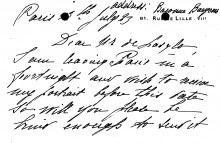 Paris
RUE DE LILLE. VII
Dear Mr de Laszlo
I am leaving Paris in a
fortnight and wish to receive
my portrait before this date
So will you please be
kind enough to send it